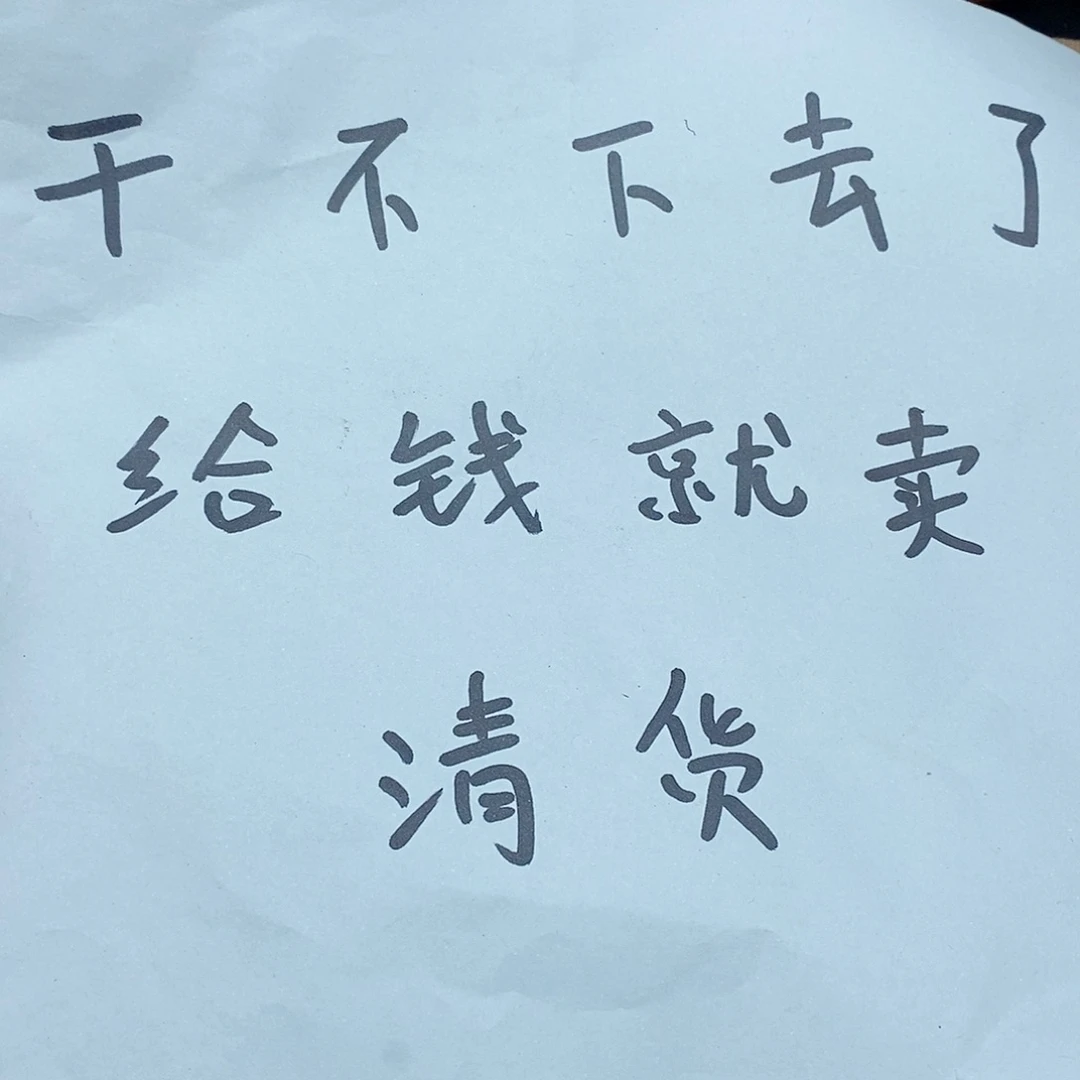 干不下去了
给钱就卖
清货